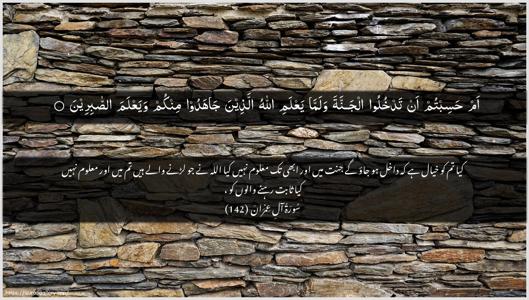 أَمْ حَسِبْتُمْ أَنْ تَدْخُلُوا الْجَنَّةَ وَلَمَّا يَعْلَمِ اللهُ الَّذِينَ جَاهَدُوْا مِنْكُمْ وَيَعْلَمَ الصّٰبِرِيْنَ ○
کیا تم کو خیال ہے کہ داخل ہو جاؤ گے جنت میں اور ابھی تک معلوم نہیں کیا اللہ نے جو لڑنے والے ہیں تم میں اور معلوم نہیں
کیا ثابت رہنے والوں کو ،
سُورَۃُ آلِ عِمْرَان (142)